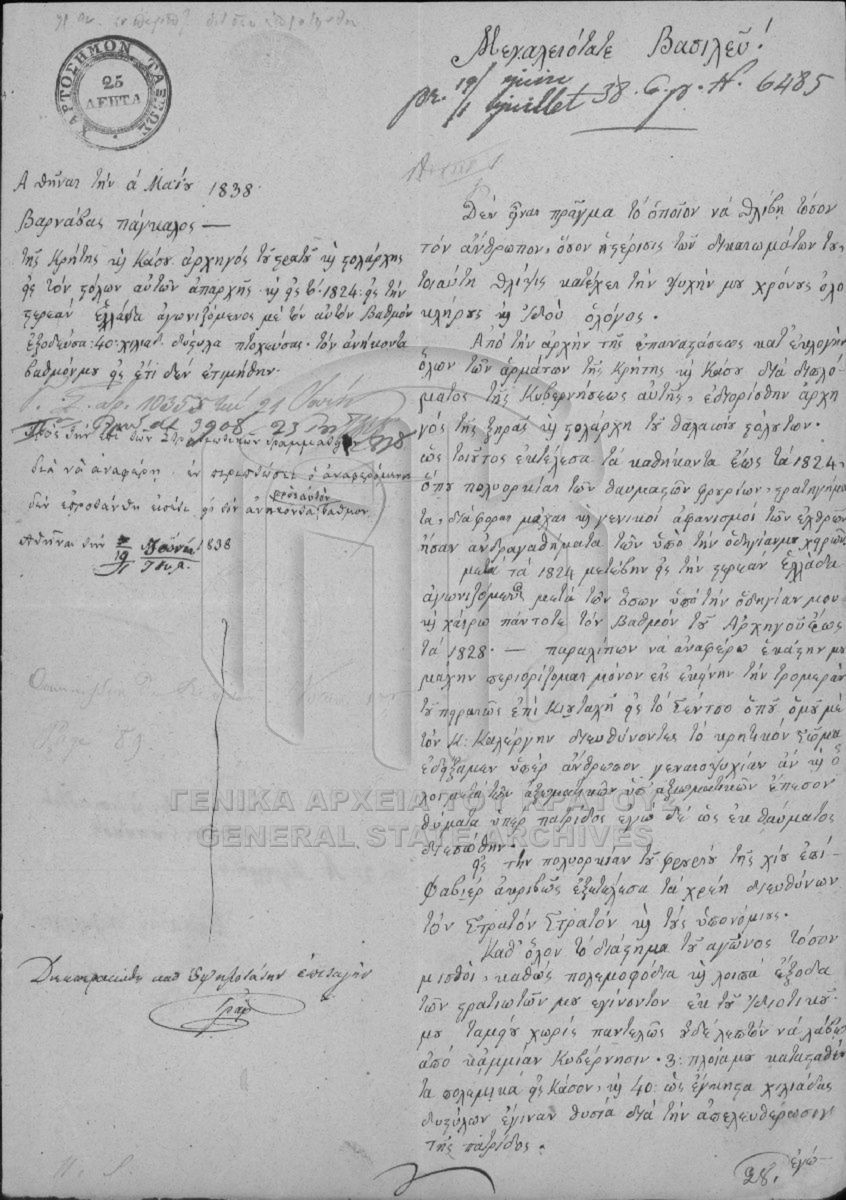 ΧΑΡΤΟΣΗΜΟΝ ΤΑΞΕΩΣ
25
ΛΕΠΤΑ
Μεγαλειότατε Βασιλεῦ!
pr. 19/1 juin juillet 38. N. 6485
Ἀθῆναι τὴν ά Μαΐου 1838.
Βαρνάβας πάγκαλος —
τῆς Κρήτης κ Κάσου ἀρχηγός τοῦ στρατοῦ κ στολάρχης
τὸν στόλων αὐτῶν ἀπαρχῆς κ 1824: εἰς τὴν
στερεὰν Ἑλλάδα ἀγωνιζόμενος μὲ τὸν αὐτὸν Βαθμὸν
ἐξοδεύσα: 40: χιλιάδ. δίστυλα πτοχεύσας. τὸν ἀνήκοντα
βαθμόν μου ἔτι δὲν ἐτιμήθην.
10355 21
3908 23
διὰ νὰ ἀναφέρῃ ἐν περιπτώσει ὁ ἀναφερόμενος
Ἀθῆναι τὴν 7/19 1838
Δὲν εἶναι πρᾶγμα τὸ ὁποῖον νὰ θλίβῃ τόσον
τὸν ἄνθρωπον, ὅσον ἡ στέρισις τῶν δικαιωμάτων του,
τοιαύτη θλίψις κατέχει τὴν ψυχήν μου χρόνους ὁλο
κλήρους κ ἰδοὺ ὁ λόγος.
Ἀπὸ τὴν ἀρχὴν τῆς ἐπαναστάσεως κατ' ἐκλογὴν
ὅλων τῶν ἁρμάτων τῆς Κρήτης κ Κάσου διὰ διπλό
ματος τῆς Κυβερνήσεως αὐτῆς, ἐδιορίσθην ἀρχη
γός τῆς ξηρᾶς κ στολάρχη τοῦ θαλασίου στόλου των.
ὡς τοιοῦτος ἐκτέλεσα τὰ καθήκοντα ἕως τὰ 1824,
ὅπου πολυορκίαι τῶν θαυμαστῶν φρυρίων, στρατηγήμα
τα, διάφοραι μάχαι κ γενικοὶ ἀφανισμοὶ τῶν ἐχθρῶν
ἦσαν ἀνδραγαθήματα τῶν ὑπὸ τὴν ὁδηγίαν μου
μετὰ τὰ 1824 μετέβην εἰς τὴν στερεὰν Ἑλλάδα
ἀγωνιζόμενος μετὰ τῶν ὅσων ὑπὸ τὴν ὁδηγίαν μου
κ χαίρω πάντοτε τὸν Βαθμὸν τοῦ Ἀρχηγοῦ ἕως
τὰ 1828. — παραλίπων νὰ ἀναφέρω ἑκάστην μου
μάχην περιορίζομαι μόνον εἰς ἐκείνην τὴν τρομερὰν
ἐπὶ Κιουταχῆ εἰς τὸ Σέντσο ὅπου ὁμοῦ μὲ
τὸν Κ: Καλέργην διευθύνοντες τὸ κρητικὸν Σῶμα
ἐδείξαμεν ὑπὲρ ἄνθρωπον γενναιοψυχίαν ἂν κ ὅ
λοι μετὰ τῶν ἀξιωματικῶν ὑπ' ἀξιωματικῶν ἔπεσον
θύματα ὑπὲρ πατρίδος ἐγὼ δὲ ὡς ἐκ θαύματος
διεσώθην.
εἰς τὴν πολυορκίαν τοῦ φρυρίου τῆς Χίου ἐπὶ
Φαβιέρ ἀκριβῶς ἐξετέλεσα τὰ χρέη διευθύνων
τὸν Στρατόν Στρατόν κ τοὺς ὑπονόμους.
Καθ' ὅλον τὸ διάστημα τοῦ ἀγῶνος τόσον
μισθοὶ, καθὼς πολεμοφόδια κ λοιπὰ ἔξοδα
τῶν στρατιωτῶν μου ἐγίνοντον ἐκ τοῦ ἰδιοτικοῦ
μου ταμείου χωρὶς παντελῶς οὐδὲ λεπτὸν νὰ λάβω
ἀπὸ κἀμμίαν Κυβέρνησιν. 3: πλοῖα μου κατασταθέν
τα πολεμικὰ εἰς Κάσον, κ 40: ὡς ἔγγιστα χιλιάδας
διστύλων ἔγιναν θυσία διὰ τὴν ἀπελευθέρωσιν
τῆς πατρίδος.
ἐγὼ
28.
ΓΕΝΙΚΑ ΑΡΧΕΙΑ ΤΟΥ ΚΡΑΤΟΥΣ
GENERAL STATE ARCHIVES